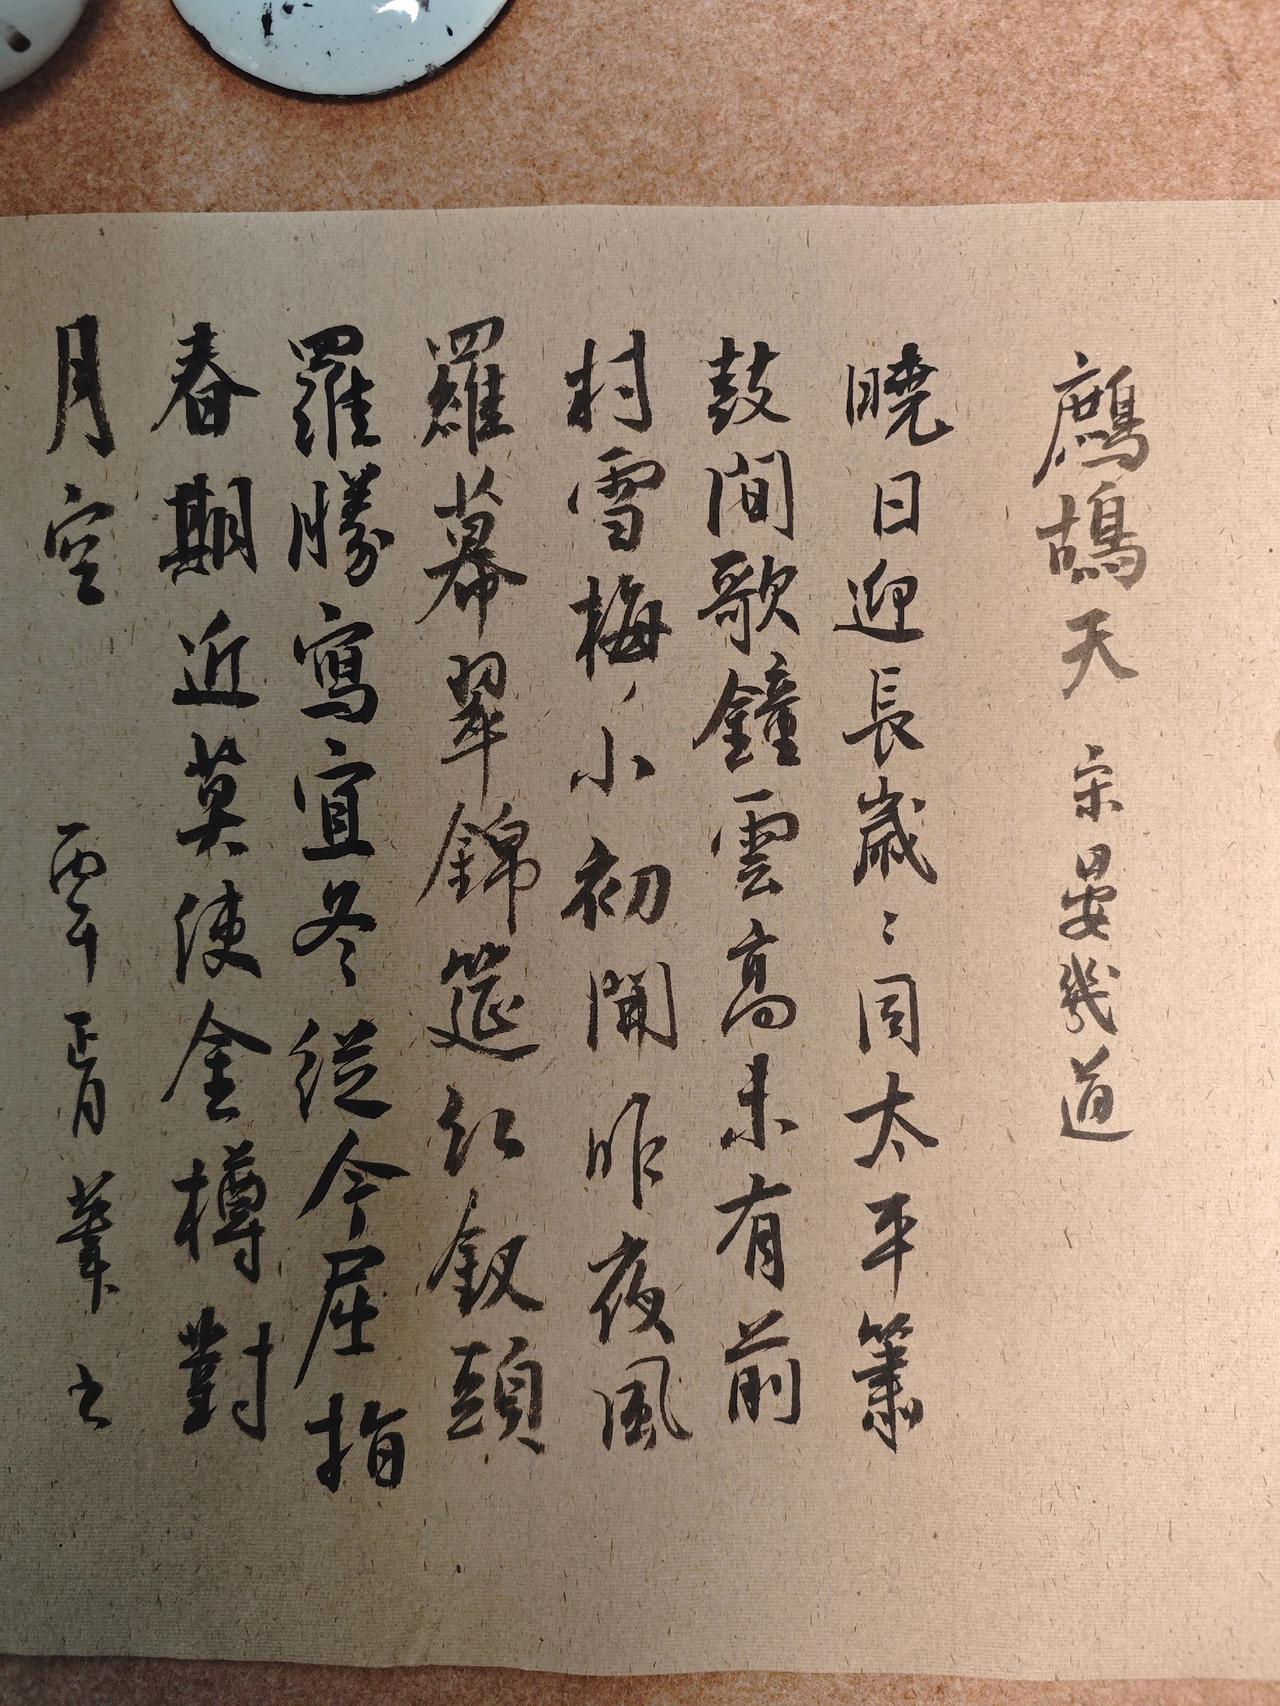 鷓鴣天 宋 晏幾道
曉日迎長歲〻同太平簫
鼓間歌鐘雲高未有前
村雪梅小初開昨夜風
羅幕翠錦筵紅釵頭
羅勝寫宜冬從今屈指
春期近莫使金樽對
月空 丙午正月